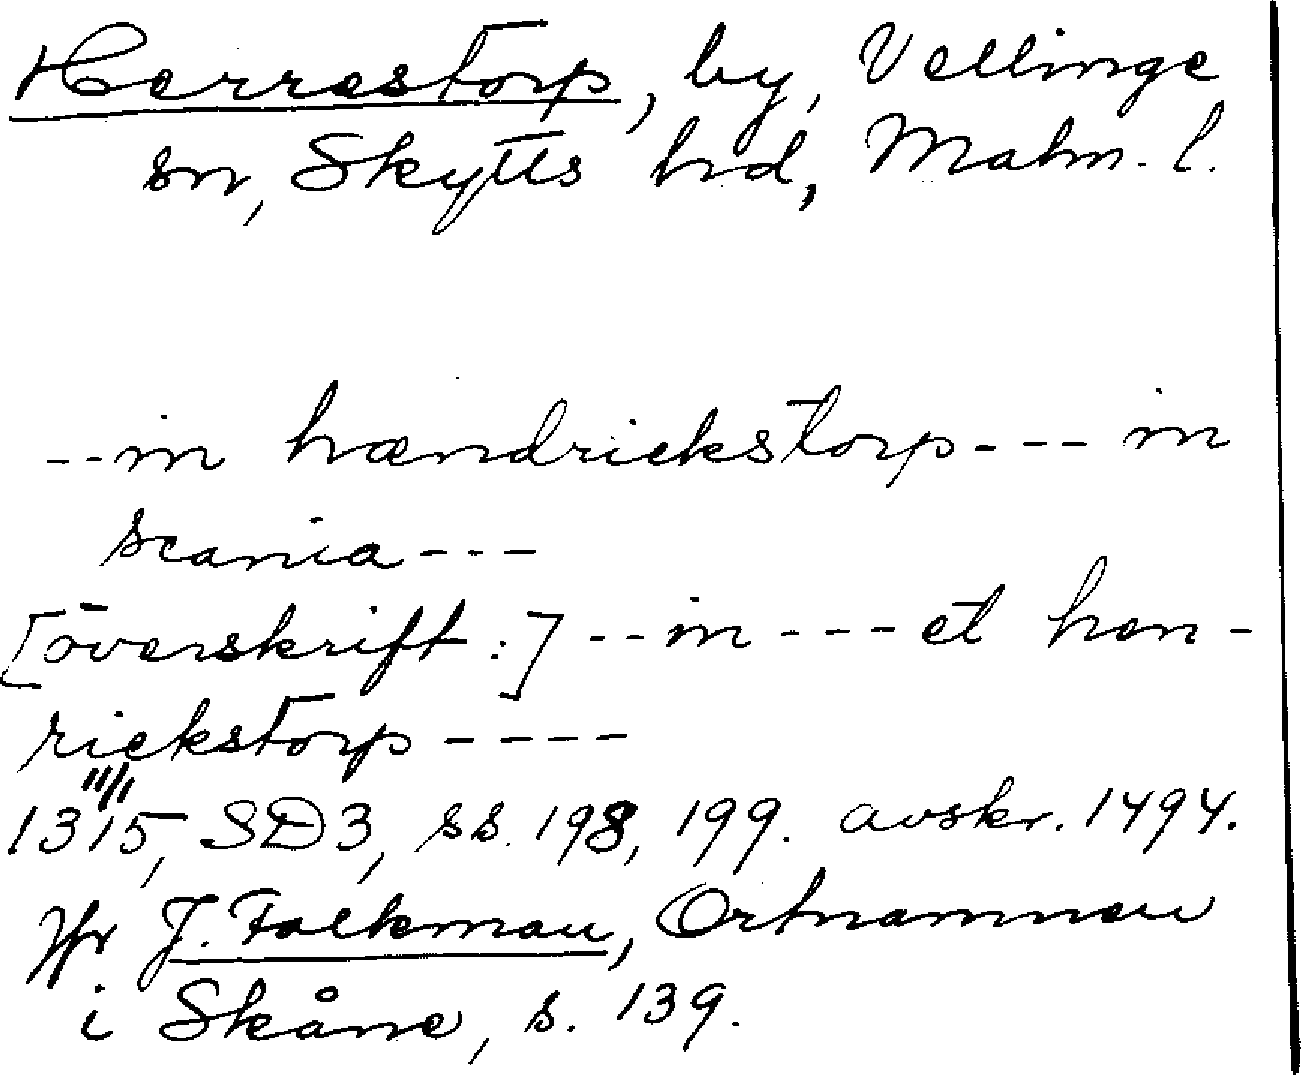 Herrestorp, by, Vellinge
sn, Skytts hd, Malm. l.
--in hændrickstorp--- in
scania---
[överskrift:]--in----et hen-
rickstorp----
11/1
1315, SD3, ss. 198, 199. avskr. 1494.
Jfr J. Falkman, Ortnamnen
i Skåne, s. 139.